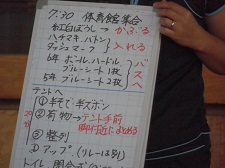 7:30 体育館集合
紅白ぼうし→かぶる
ハチマキ、バトン
ダッシュマーフ 入れる
6年 ボール、ハードル
ブルーシート1枚
5年 ブルーシート2枚 バスへ
テントへ
① 半そで・半ズボン
② 荷物→テント手前
③ 整列
④ アップ。(リレーは別)
トイレ